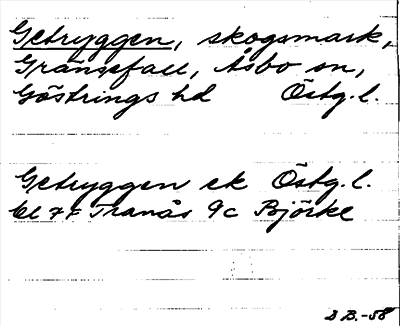 Getryggen, skogsmark,
Gränsefall, Åsbo sn,
Göstrings hd Östg.l.
Getryggen ek Östg.l.
bl 7F Tranås 9c Björke
B.-58